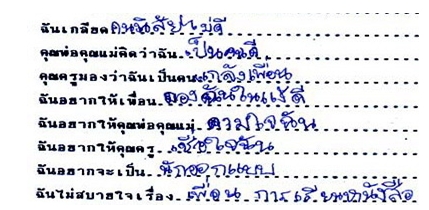 ฉันเกลียด คนนิสัยไม่ดี
คุณพ่อคุณแม่คิดว่าฉัน เป็นคนดี
คุณครูมองว่าฉันเป็นคน แกล้งเพื่อน
ฉันอยากให้เพื่อน มองฉันในแง่ดี
ฉันอยากให้คุณพ่อคุณแม่ ตามใจฉัน
ฉันอยากให้คุณครู เข้าใจฉัน
ฉันอยากจะเป็น นักออกแบบ
ฉันไม่สบายใจเรื่อง เพื่อน การเรียนหนังสือ